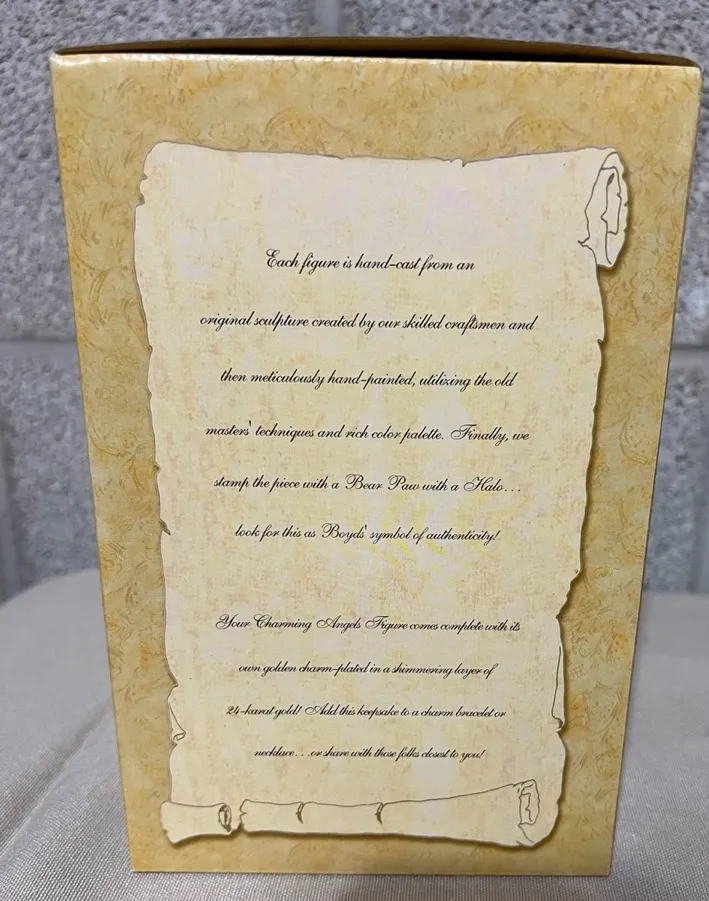 Each figure is hand-cast from an
original sculpture created by our skilled craftsmen and
then meticulously hand-painted, utilizing the old
masters' techniques and rich color palette. Finally, we
stamp the piece with a Bear Paw with a Halo...
look for this as Boyds' symbol of authenticity!
Your Charming Angels Figure comes complete with its
own golden charm-plated in a shimmering layer of
24-karat gold! Add this keepsake to a charm bracelet or
necklace...or share with those folks closest to you!